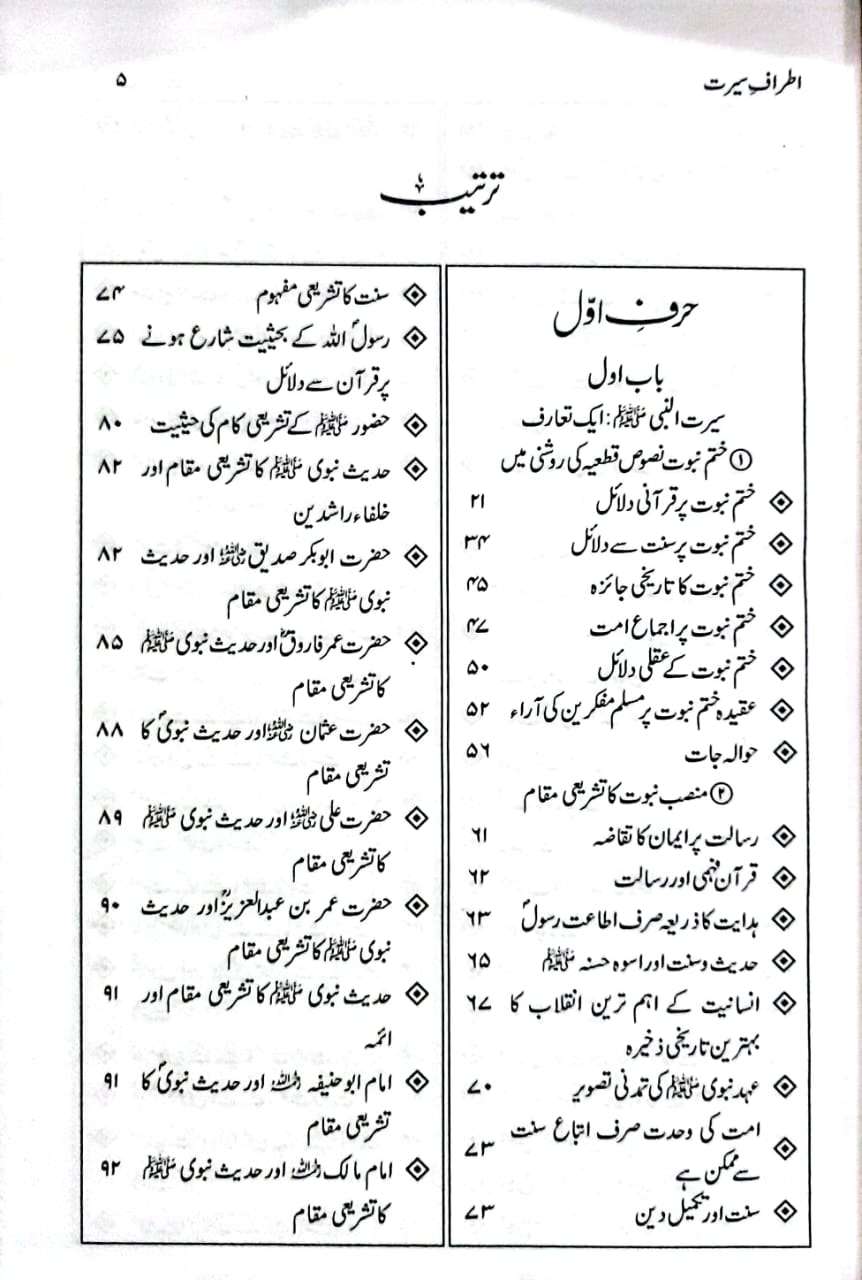 اطرافِ سیرت ۵
ترتیب
حرفِ اوّل
باب اول
سیرت النبی ﷺ: ایک تعارف
① ختم نبوت نصوص قطعیہ کی روشنی میں
ختم نبوت پر قرآنی دلائل ۲۱
ختم نبوت پر سنت سے دلائل ۳۴
ختم نبوت کا تاریخی جائزہ ۴۵
ختم نبوت پر اجماع امت ۴۷
ختم نبوت کے عقلی دلائل ۵۰
عقیدہ ختم نبوت پر مسلم مفکرین کی آراء ۵۲
حوالہ جات ۵۶
② منصب نبوت کا تشریعی مقام
رسالت پر ایمان کا تقاضہ ۶۱
قرآن فہمی اور رسالت ۶۲
ہدایت کا ذریعہ صرف اطاعت رسولؐ ۶۳
حدیث و سنت اور اسوہ حسنہ ﷺ ۶۵
انسانیت کے اہم ترین انقلاب کا ۶۷
بہترین تاریخی ذخیرہ
عہد نبوی ﷺ کی تمدنی تصویر ۷۰
امت کی وحدت صرف اتباع سنت
سے ممکن ہے ۷۳
سنت اور تکمیل دین ۷۳
سنت کا تشریعی مفہوم ۷۴
رسولؐ اللہ کے بحیثیت شارع ہونے ۷۵
پر قرآن سے دلائل
حضور ﷺ کے تشریعی کام کی حیثیت ۸۰
حدیث نبوی ﷺ کا تشریعی مقام اور ۸۲
خلفاء راشدین
حضرت ابوبکر صدیق رضی اللہ عنہ اور حدیث ۸۲
نبوی ﷺ کا تشریعی مقام
حضرت عمر فاروقؓ اور حدیث نبوی ﷺ ۸۵
کا تشریعی مقام
حضرت عثمان رضی اللہ عنہ اور حدیث نبویؐ کا ۸۸
تشریعی مقام
حضرت علی رضی اللہ عنہ اور حدیث نبوی ﷺ ۸۹
کا تشریعی مقام
حضرت عمر بن عبدالعزیزؒ اور حدیث ۹۰
نبوی ﷺ کا تشریعی مقام
حدیث نبوی ﷺ کا تشریعی مقام اور ۹۱
ائمہ
امام ابو حنیفہ رحمہ اللہ اور حدیث نبویؐ کا ۹۱
تشریعی مقام
امام مالک رحمہ اللہ اور حدیث نبوی ﷺ ۹۲
کا تشریعی مقام